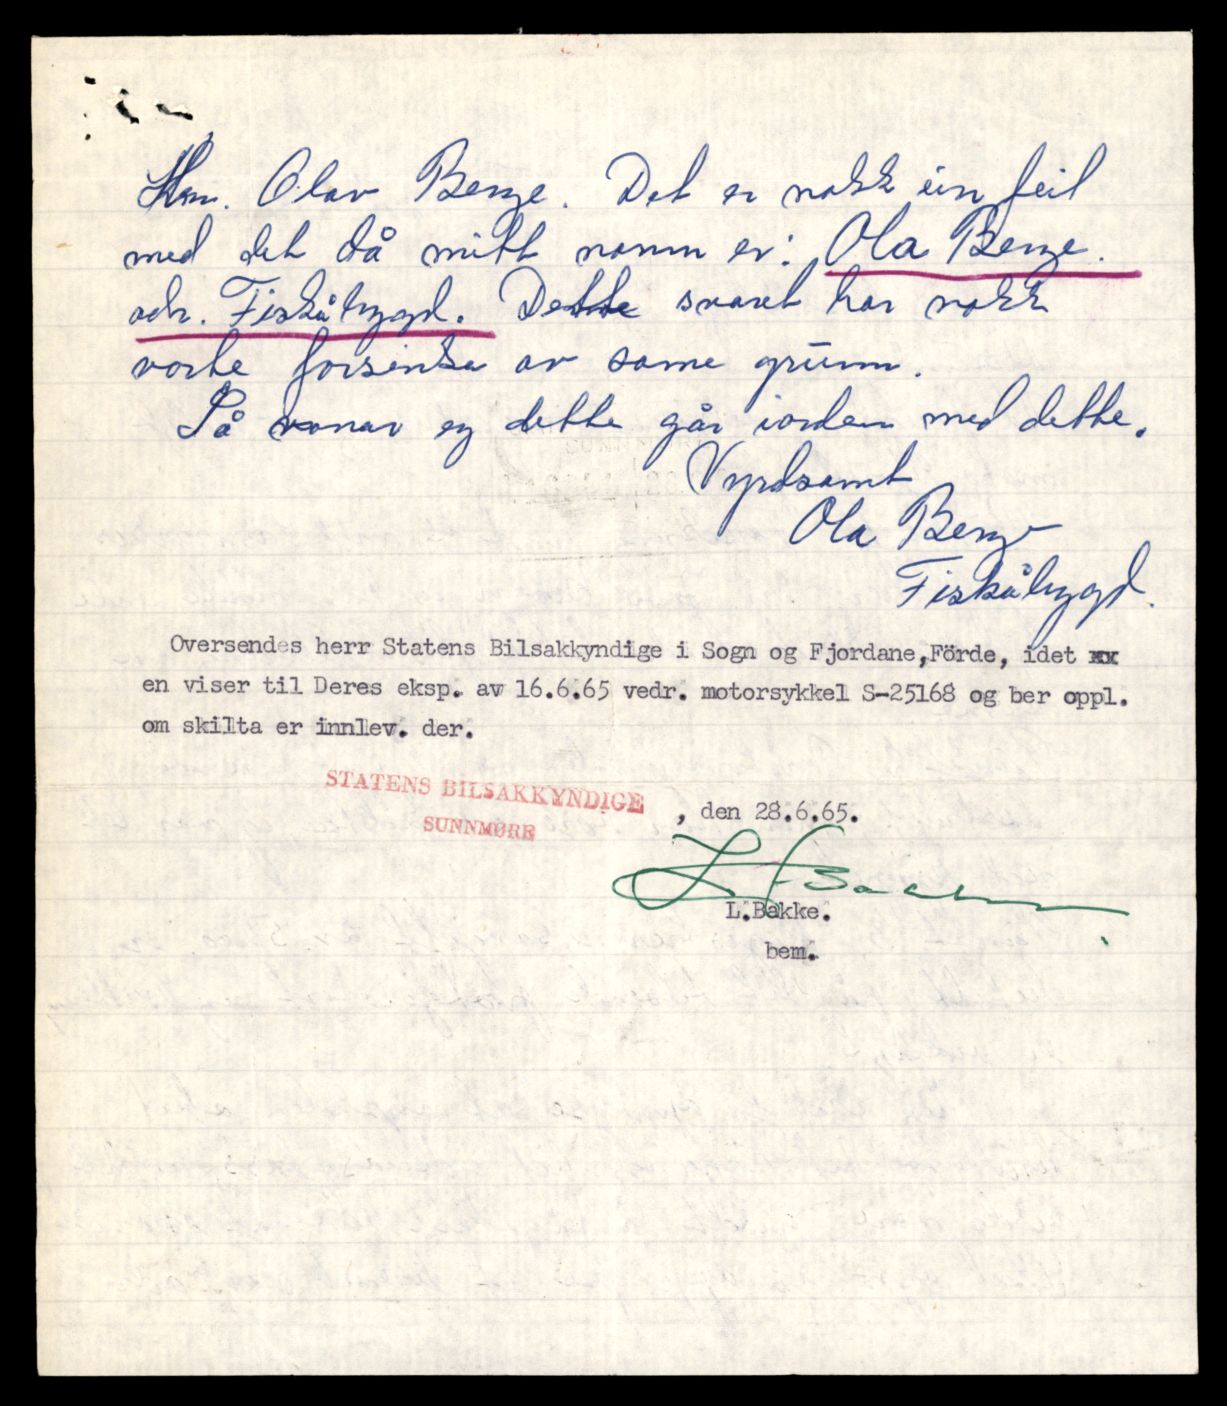 Hrr. Olav Berge. Det er nokk ein feil
med det då mitt namn er: Ola Berge.
adr. Fiskåbygd. Dette svaret har nokk
vorte forsinka av same grunn.
Så vonar eg dette går iorden med dette.
Vyrdsamt
Ola Berge
Fiskåbygd.
Oversendes herr Statens Bilsakkyndige i Sogn og Fjordane,Förde, idet xx
en viser til Deres eksp. av 16.6.65 vedr. motorsykkel S-25168 og ber oppl.
om skilta er innlev. der.
STATENS BILSAKKYNDIGE
SUNNMØRE
, den 28.6.65.
L Bakke
L.Bakke.
bem.